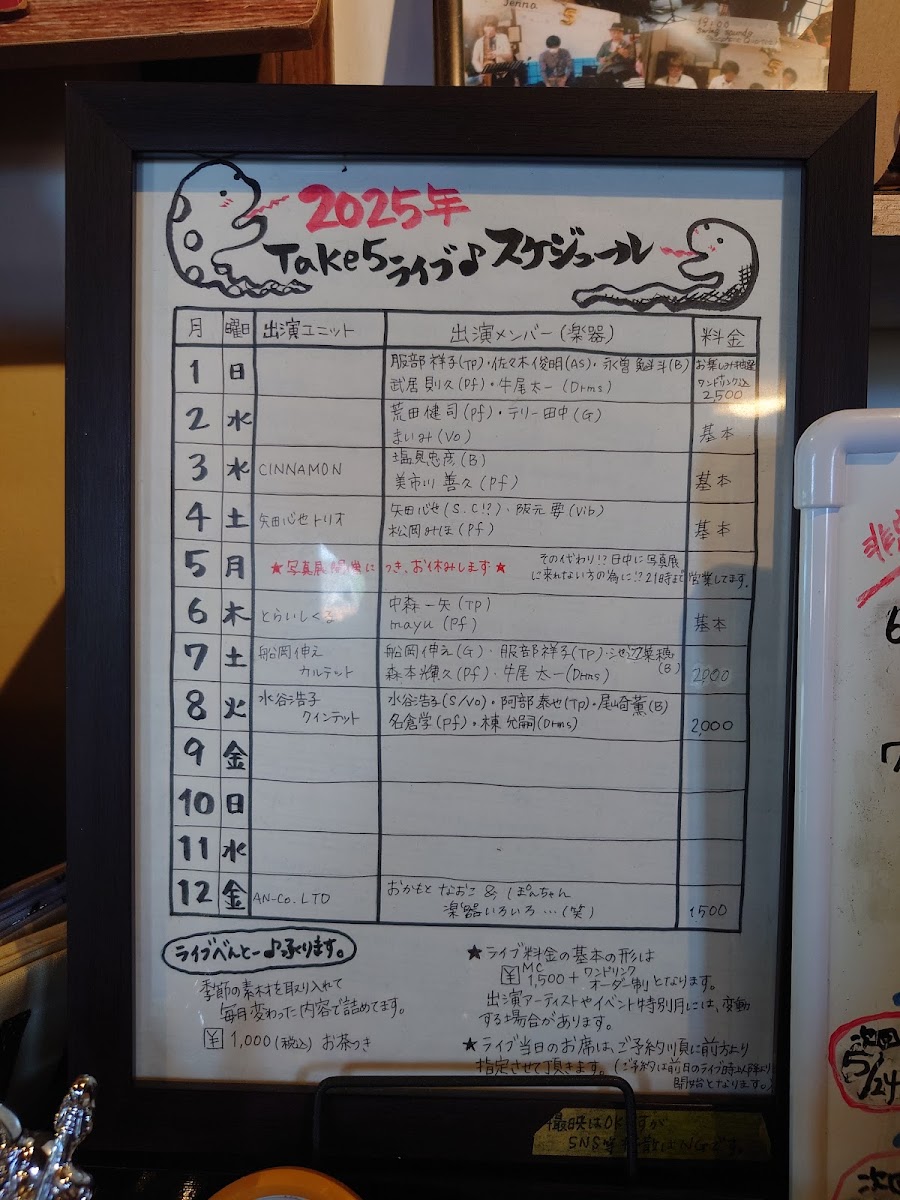 2025年
Take5ライブ♪スケジュール
月 曜日 出演ユニット 出演メンバー(楽器) 料金
1 日 服部祥子(TP)・佐々木俊明(AS)・永曽 斗(B) お楽しみ抽選
武居則久(Pf)・牛尾太一(Drms) ワンドリンク込
2,500
2 水 荒田健司(Pf)・テリー田中(G)
まいみ(Vo) 基本
3 水 CINNAMON 塩見忠彦(B)
美市川善久(Pf) 基本
4 土 矢田心也トリオ 矢田心也(S.C!?)・阪元要(Vib)
松岡みほ(Pf) 基本
5 月 ★写真展開催につき、お休みします★ その代わり!?日中に写真展
に来れない方の為に!?21時まで営業してます。
6 木 とらいしくる 中森一矢(TP)
mayu(Pf) 基本
7 土 船岡伸え 船岡伸え(G)・服部祥子(TP)・池辺菜穂
カルテット 森本輝久(Pf)・牛尾太一(Drms) (B) 2,000
8 火 水谷浩子 水谷浩子(S/Vo)・阿部泰也(Tp)・尾崎薫(B)
クインテット 名倉学(Pf)・棟允嗣(Drms) 2,000
9 金
10 日
11 水
12 金 AN-Co.LTD おかもとなおこ & ぽんちゃん
楽器いろいろ…(笑) 1500
ライブべんとー♪承ります。
季節の素材を取り入れて
毎月変わった内容で詰めてます。
¥1,000(税込)お茶つき
★ライブ料金の基本の形は
¥MC1,500+ワンドリンクオーダー制となります。
出演アーティストやイベント特別月には、変動
する場合があります。
★ライブ当日のお席は、ご予約順に前方より
指定させて頂きます。(ご予約は前日のライブ時以降より
開始となります。)
撮映はOKですが
SNS
Jenno.
19:00
6
7
次回
5/24
次回